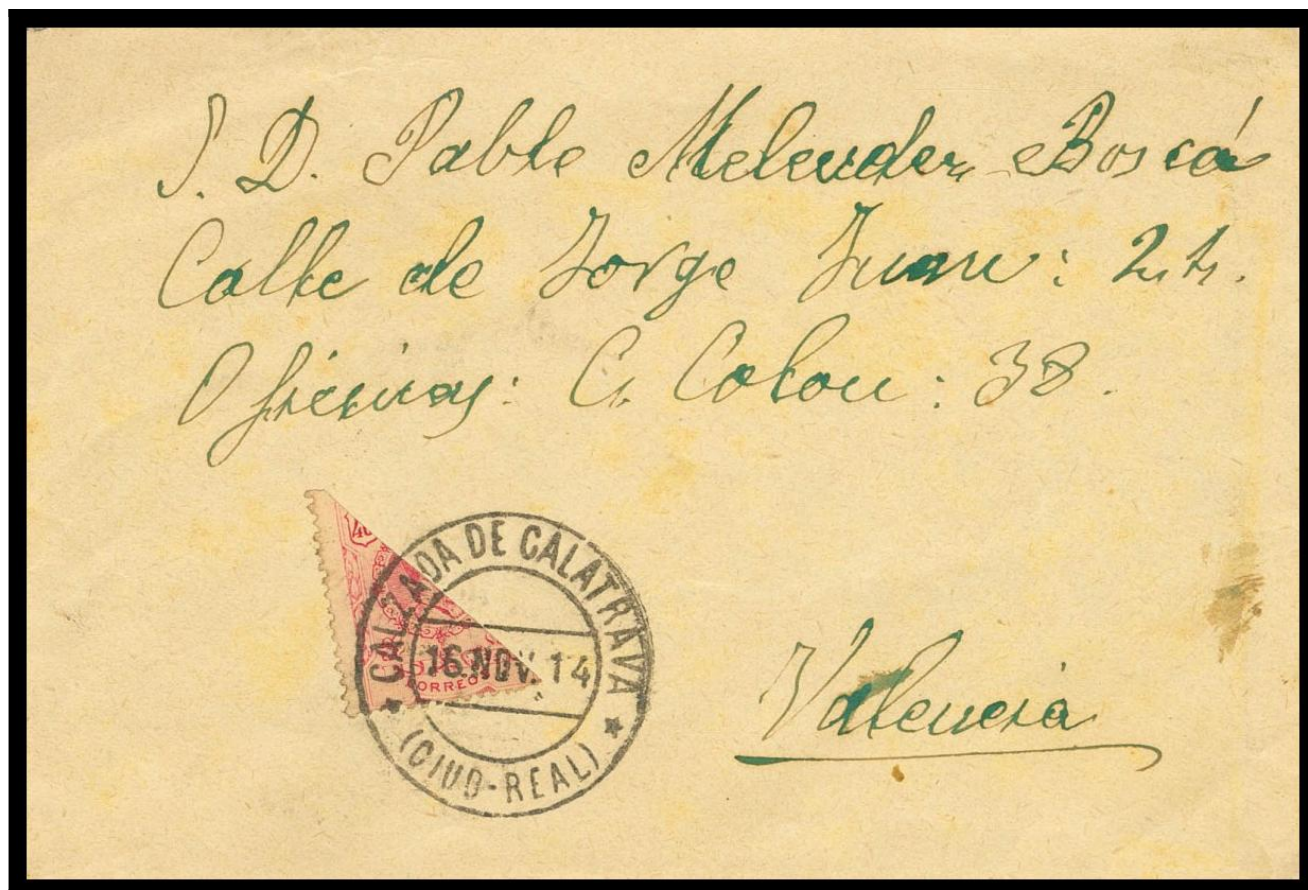 S. D. Pablo Melendez Boscá
Calle de Jorge Juan: 24.
Oficinas: C. Colon: 38.
40
CALZADA DE CALATRAVA
16.NOV.14
CORREOS
(CIUD-REAL)
Valencia